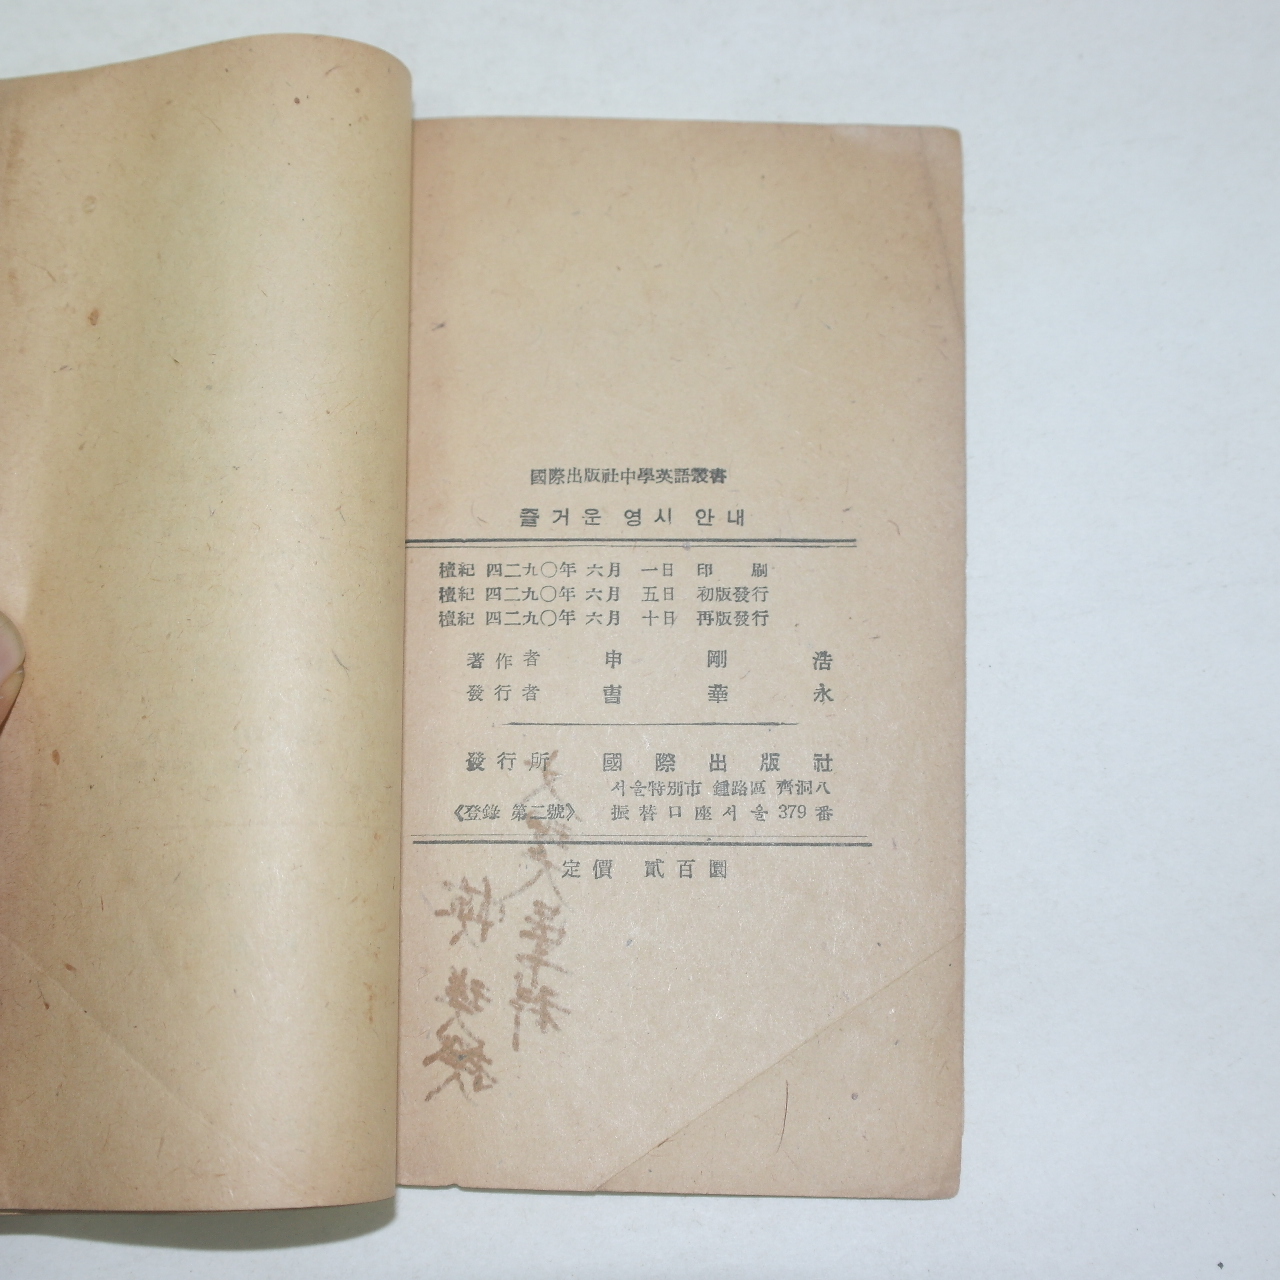 國際出版社中學英語叢書
즐거운 영시 안내
檀紀 四二九〇年 六月 一日 印 刷
檀紀 四二九〇年 六月 五日 初版發行
檀紀 四二九〇年 六月 十日 再版發行
著作者 申 剛 浩
發行者 曺 華 永
發行所 國際出版社
서울特別市 鍾路區 齊洞八
《登錄 第二號》 振替口座서울379番
定價 貳百圜